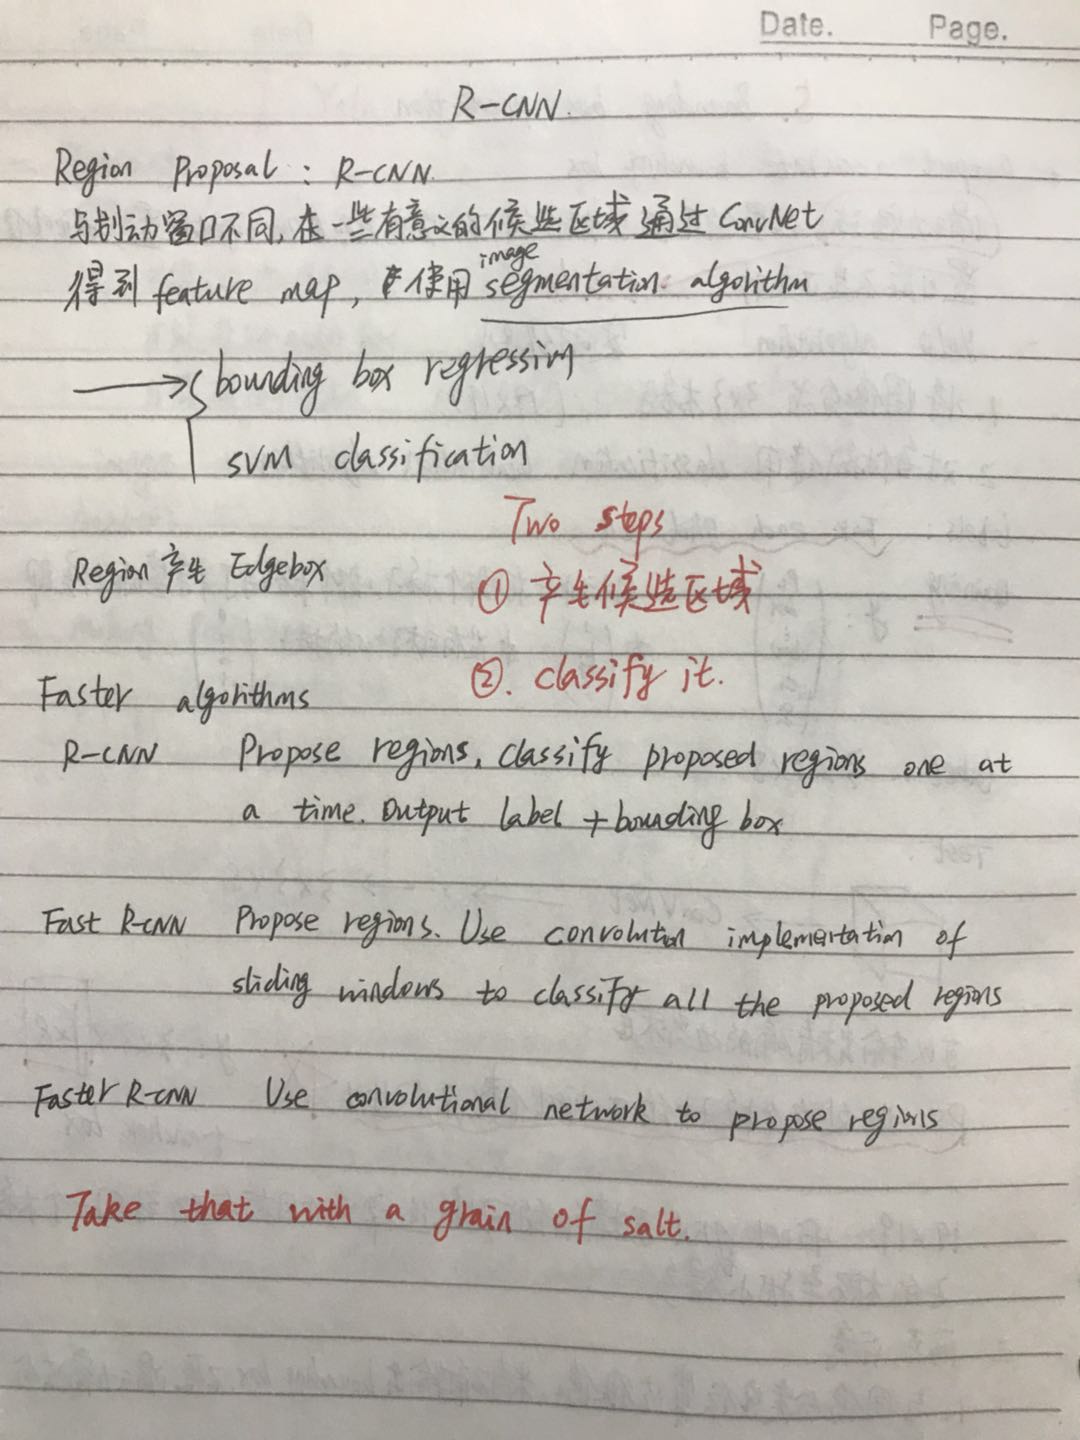 Date. Page.
R-CNN.
Region Proposal : R-CNN.
与划动窗口不同, 在一些有意义的候选区域通过 ConvNet
得到 feature map, 使用 image segmentation algorithm
→ { bounding box regression
SVM classification
Two steps
Region 产生 Edgebox
① 产生候选区域
②. classify it.
Faster algorithms
R-CNN Propose regions. Classify proposed regions one at
a time. Output label + bounding box
Fast R-CNN Propose regions. Use convolution implementation of
sliding windows to classify all the proposed regions
Faster R-CNN Use convolutional network to propose regions
Take that with a grain of salt.